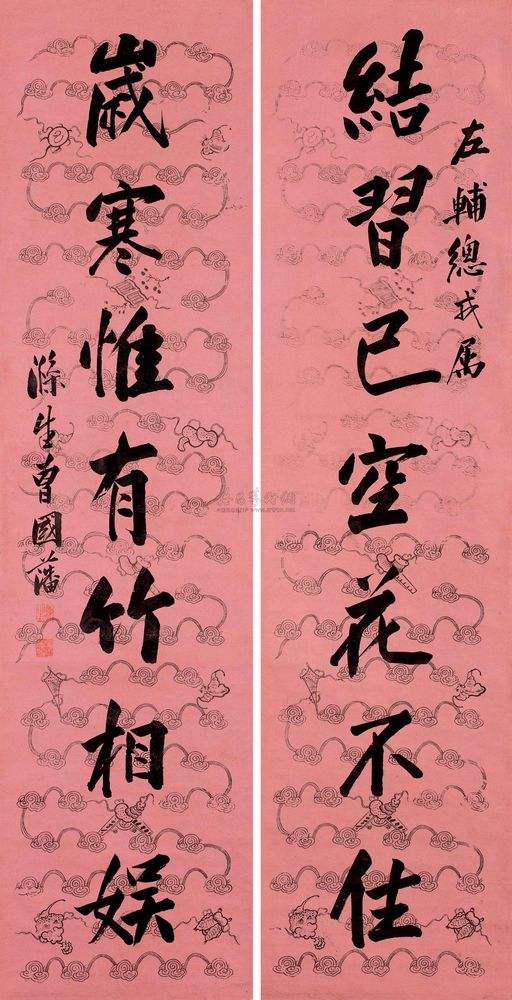 左輔總戎属
結習已空花不住
歲寒惟有竹相娱
滌生曾國藩